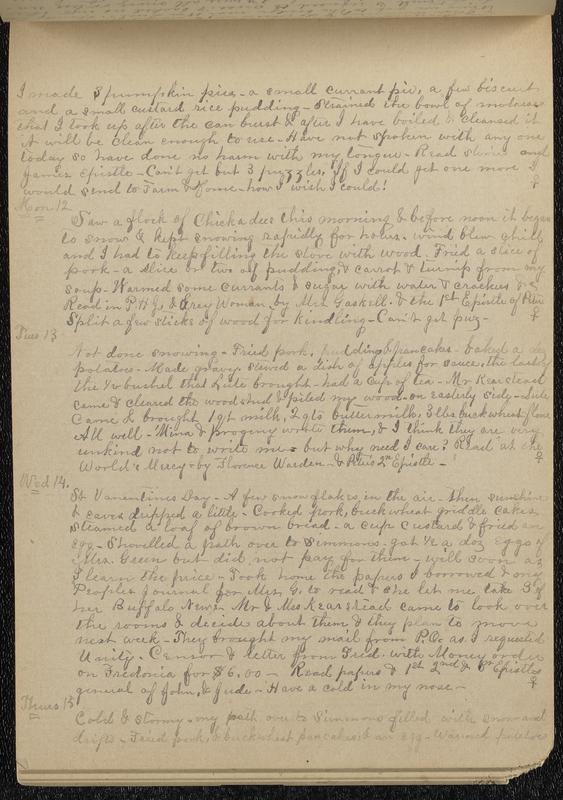 I made 3 pumpkin pies - a small currant pie, a few biscuit
and a small custard rice pudding - Strained the bowl of molasses
that I took up after the can burst & after I have boiled & cleansed it
it will be clean enough to use - Have not spoken with any one
today so have done no harm with my tongue - Read stories and
James Epistle - Can't get but 3 puzzles, If I could get one more I
would send to Farm & Home - how I wish I could! ♀
Mon 12
Saw a flock of Chickadees this morning & before noon it began
to snow & kept snowing rapidly for hours. wind blew chill
and I had to keep filling the stove with wood. Fried a slice of
pork - a slice or two of pudding, & carrot & turnip from my
soup - Warmed some currants & sugar with water & crackers &
Read in P.H.G, & Grey Woman, by Mrs Gaskell. & the 1st Epistle of Peter
Split a few sticks of wood for kindling - Can't get puz - ♀
Tues 13
Not done snowing - Fried pork, pudding & pancakes - baked a
potatoe - Made gravy, stewed a dish of apples for sauce, the last of
the ½ bushel that Lute brought - had a cup of tea - Mr Kearstead
came & cleared the woodshed & piled my wood - on easterly side - Lute
Came & brought 1 qt milk, 2 qts buttermilk, 3 lbs buckwheat flour
All well - Mina & progeny wrote them, & I think they are very
unkind not to write me - but why need I care? Read "At the
World's Mercy - by Florence Warden - & Peter's 2nd Epistle - ♀
Wed 14.
St Vanentines Day - A few snowflakes in the air - then sunshine
& eaves dripped a little - Cooked pork, buckwheat griddle cakes,
steamed a loaf of brown bread - a cup custard & fried an
egg - Shovelled a path over to Simmons - got ½ a doz eggs of
Mrs. Green but did not pay for them - will soon as
I learn the price - Took home the papers I borrowed & my
Peoples Journal for Mrs. G. to read & she let me take 3 of
her Buffalo News - Mr & Mrs Kearstead came to look over
the rooms & decide about them & they plan to move
next week - They brought my mail from P.O. as I requested
Unity - Censor & letter from Fred. with Money order
on Fredonia for $6.00 - Read papers & 1st 2nd & 3rd Epistles
general of John, & Jude - Have a cold in my nose - ♀
Thurs 15
Cold & stormy - my path over to Simmons filled with snow and
drifts - Fried pork, & buckwheat pancakes & an egg - Warmed potatoes